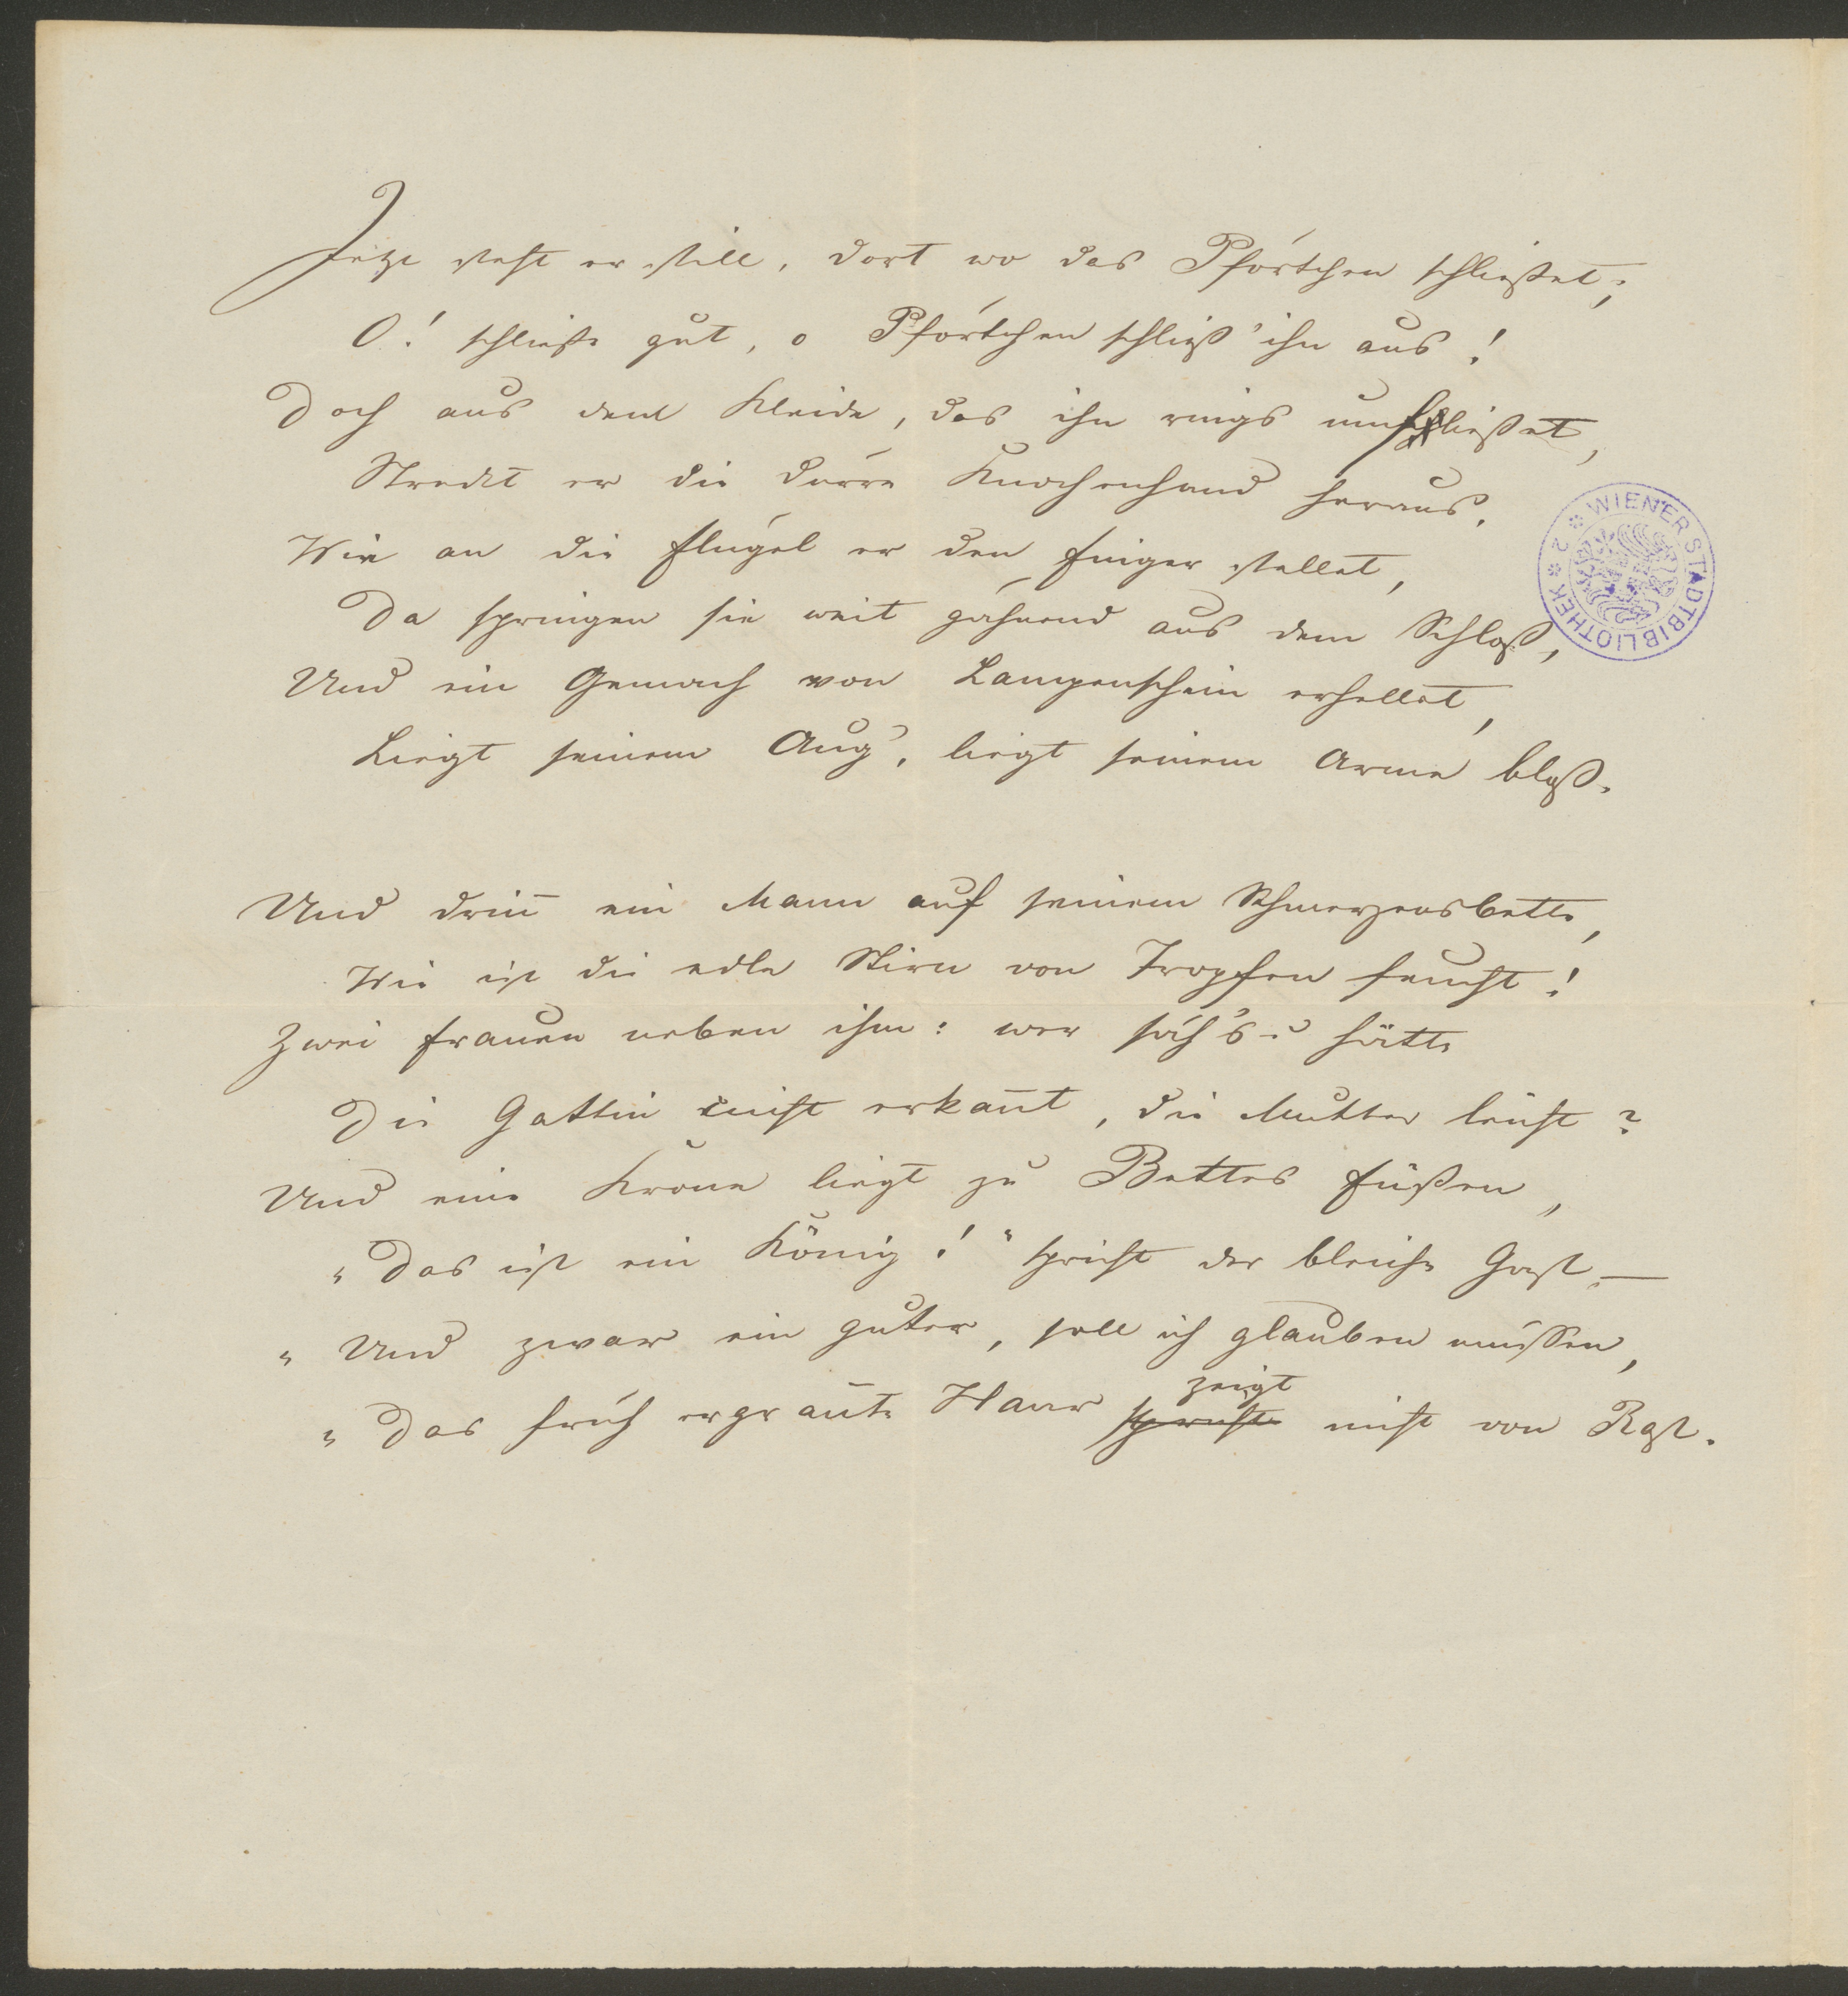 Jetzt steht er still, dort wo das Pförtchen schließet;
O! schließe gut, o Pförtchen schließ' ihn aus!
Doch aus dem Kleide, das ihn rings umfließet,
Streckt er die dürre Knochenhand heraus.
Wie an die Flügel er den Finger stellet,
Da springen sie weit gähnend aus dem Schloß,
Und ein Gemach von Lampenschein erhellet,
Liegt seinem Aug', liegt seinem Arme bloß.
Und drin̅ ein Mann auf seinem Schmerzensbette,
Wie ist die edle Stirn von Tropfen feucht!
Zwei Frauen neben ihm: wer säh's u hätte
Die Gattin nicht erkan̅t, die Mutter leicht?
Und eine Krone liegt zu Bettes Füßen,
„Das ist ein König!" spricht der bleiche Gast. —
„Und zwar ein guter, soll ich glauben müssen,
zeigt
„Das früh ergraute Haar spricht nicht von Rast.
WIENER STADTBIBLIOTHEK 2